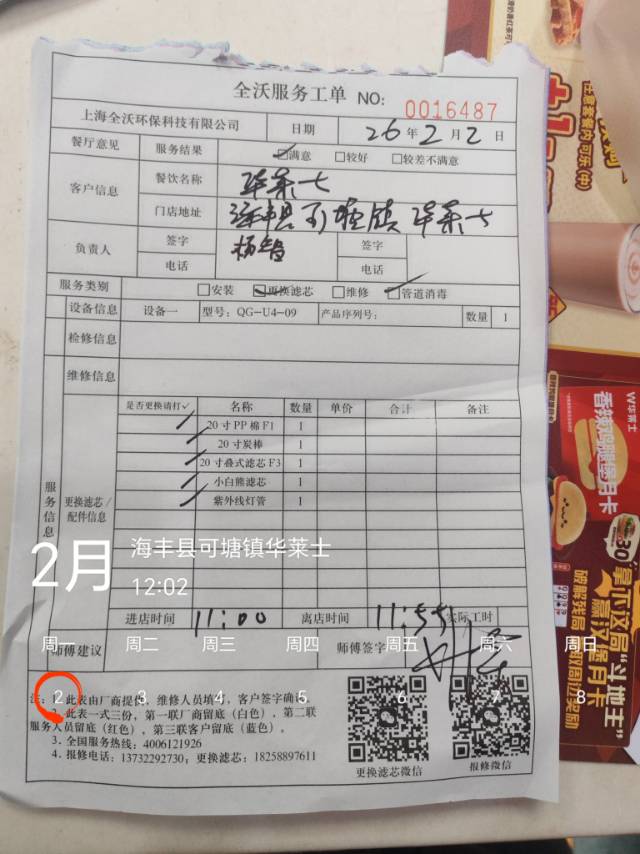 全沃服务工单 NO: 0016487
上海全沃环保科技有限公司 日期 26年2月2日
餐厅意见 服务结果 ☑满意 □较好 □较差不满意
客户信息 餐饮名称 华莱士
门店地址 海丰县可塘镇华莱士
负责人 签字 杨 签字
电话 电话
服务类别 □安装 ☑更换滤芯 □维修 ☑管道消毒
设备信息 设备一 型号: QG-U4-09 产品序列号: 数量 1
检修信息
维修信息
服务信息
更换滤芯/配件信息
是否更换请打✓ 名称 数量 单价 合计 备注
✓ 20寸PP棉F1 1
✓ 20寸炭棒 1
✓ 20寸叠式滤芯F3 1
✓ 小白熊滤芯 1
✓ 紫外线灯管 1
2月 海丰县可塘镇华莱士
12:02
进店时间 11:00 离店时间 11:55 实际工时
周一 周二 周三 周四 周五 周六 周日
师傅建议 师傅签字
2 3 4 5 6 7 8
注: 1. 此表由厂商提供, 维修人员填写, 客户签字确认
2. 此表一式三份, 第一联厂商留底（白色）, 第二联
服务人员留底（红色）, 第三联客户留底（蓝色）。
3. 全国服务热线: 4006121926
4. 报修电话: 13732292730; 更换滤芯: 18258897611
更换滤芯微信 报修微信
任意套餐内可乐(中)
W华莱士
香辣鸡腿堡月卡
30
拿下这局“斗地主”
赢汉堡月卡